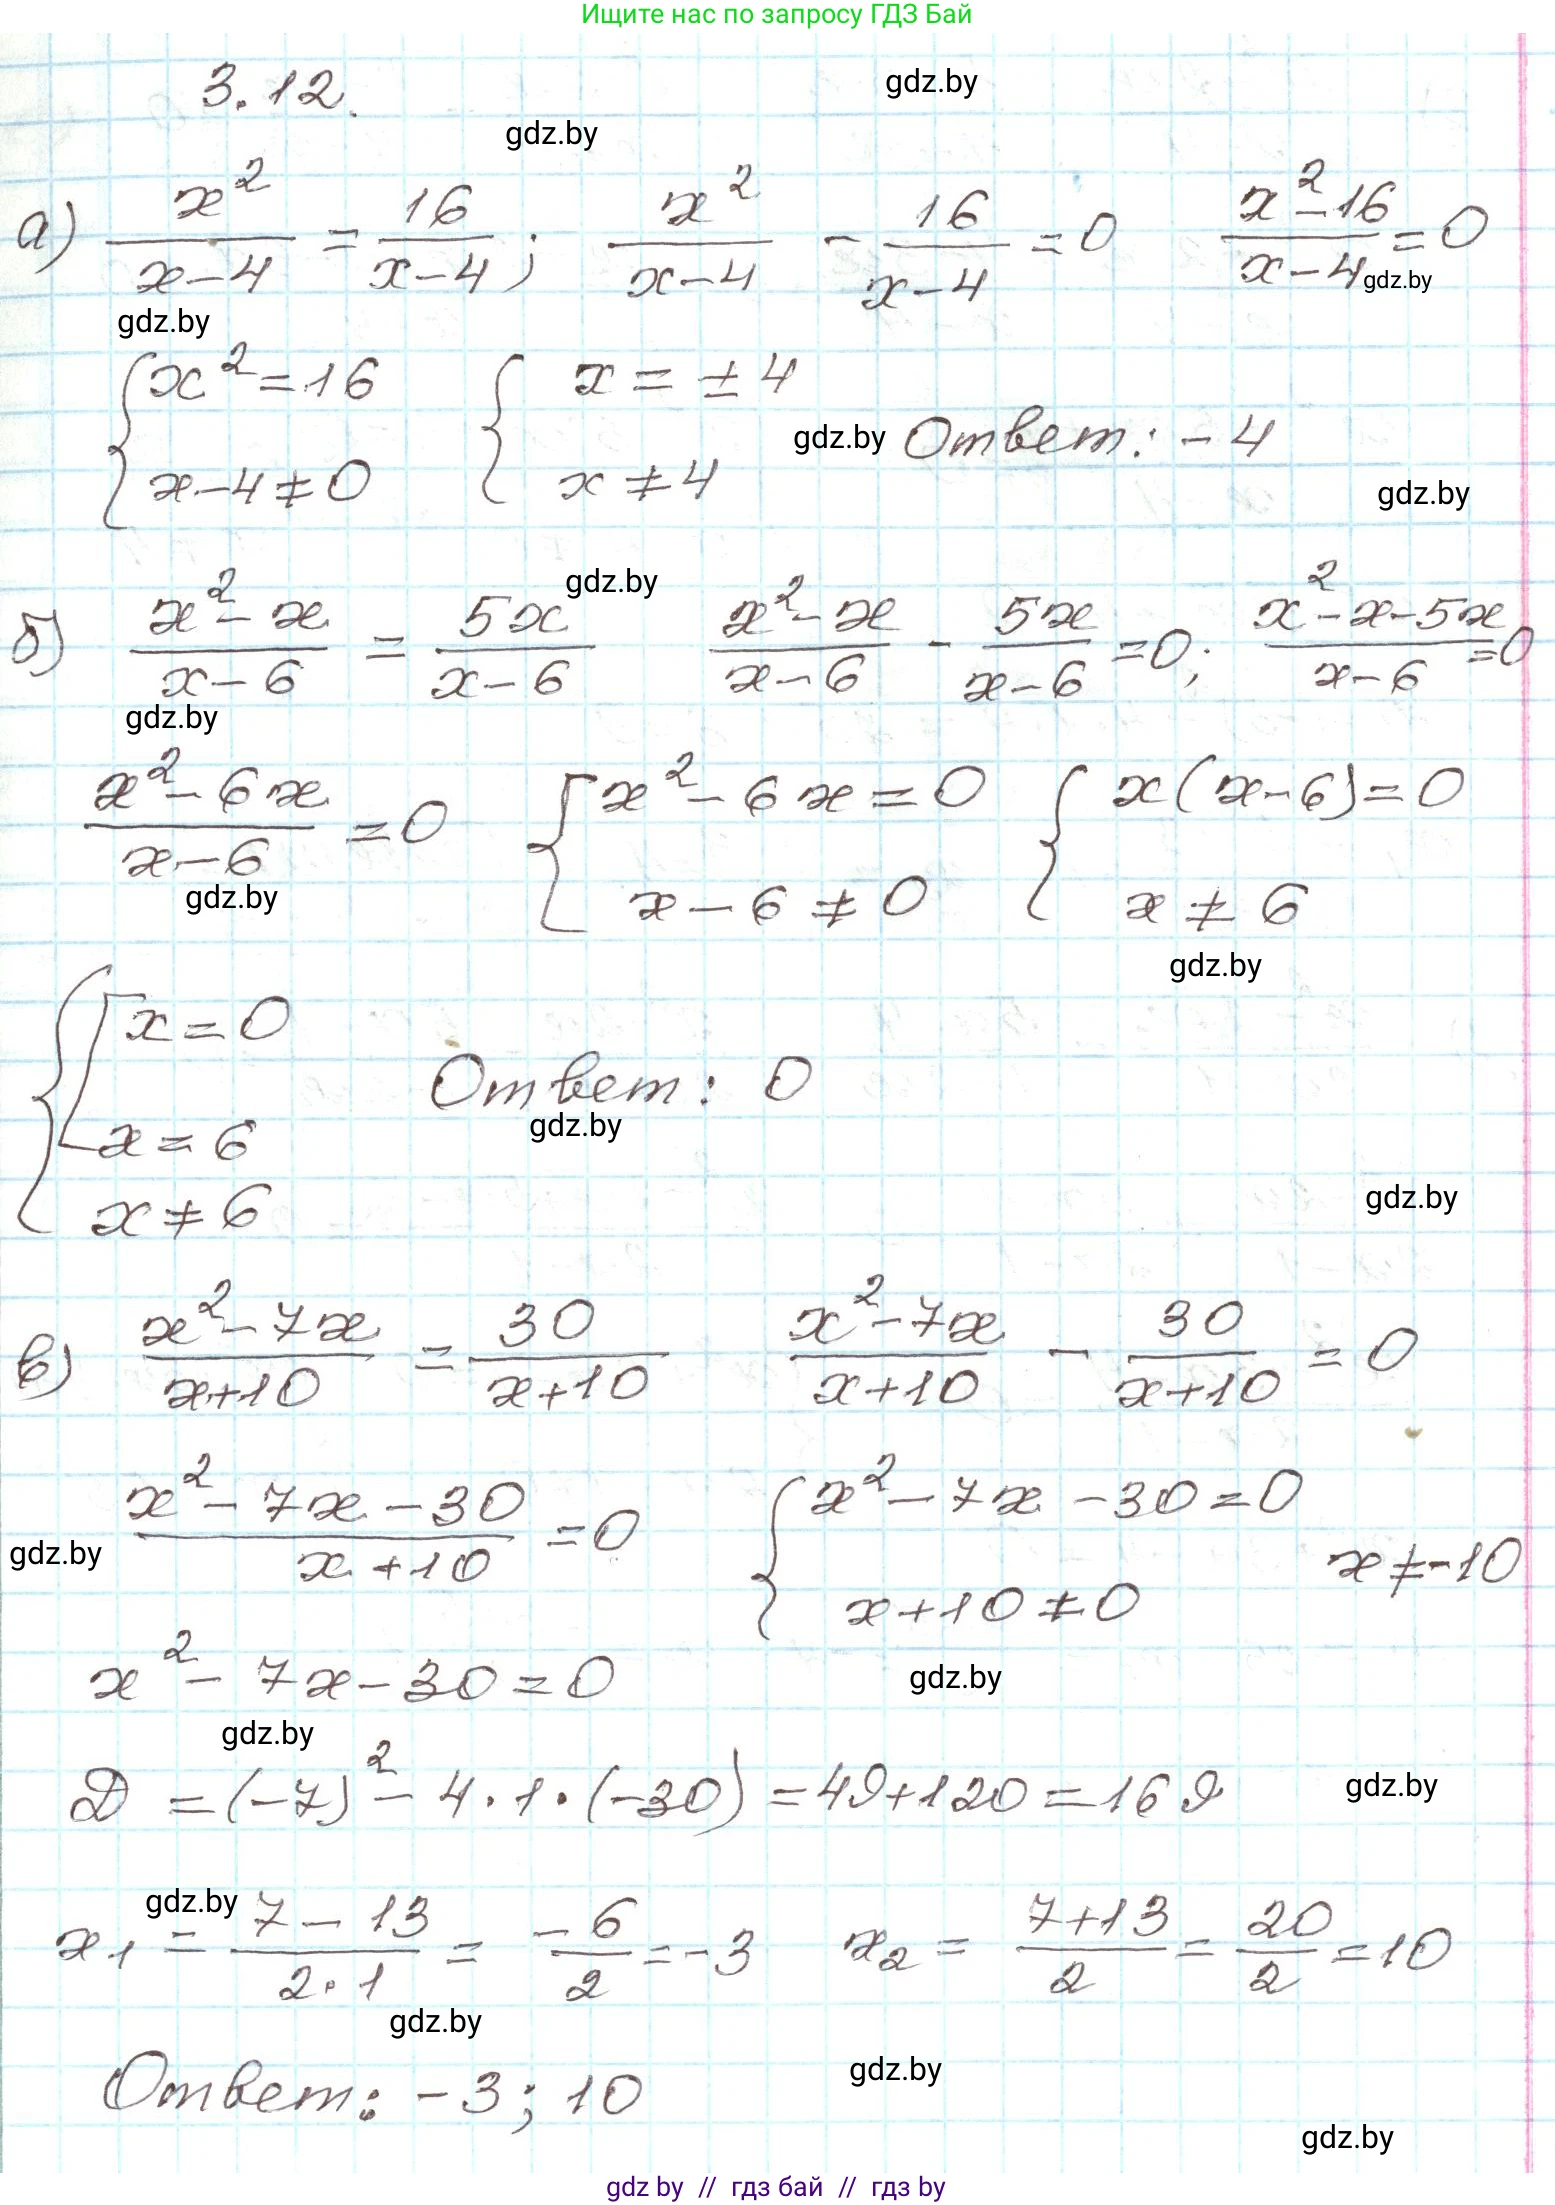 Ищите нас по запросу ГДЗ Бай
3.12.
gdz.by
gdz.by
а) x²/(x-4) = 16/(x-4); x²/(x-4) - 16/(x-4) = 0 (x²-16)/(x-4) = 0
gdz.by
gdz.by
{ x² = 16 { x = ±4
x-4 ≠ 0 x ≠ 4 gdz.by Ответ: -4
gdz.by
gdz.by
б) (x²-x)/(x-6) = 5x/(x-6) (x²-x)/(x-6) - 5x/(x-6) = 0; (x²-x-5x)/(x-6) = 0
gdz.by
(x²-6x)/(x-6) = 0 { x²-6x = 0 { x(x-6) = 0
x-6 ≠ 0 x ≠ 6
gdz.by
gdz.by
{ [ x = 0
Ответ: 0
gdz.by
x = 6
x ≠ 6
gdz.by
в) (x²-7x)/(x+10) = 30/(x+10) (x²-7x)/(x+10) - 30/(x+10) = 0
(x²-7x-30)/(x+10) = 0 { x²-7x-30 = 0
gdz.by
x+10 ≠ 0 x ≠ -10
x²-7x-30 = 0
gdz.by
gdz.by
D = (-7)²-4·1·(-30) = 49+120 = 169
gdz.by
gdz.by
x₁ = (7-13)/(2·1) = -6/2 = -3 x₂ = (7+13)/2 = 20/2 = 10
gdz.by
gdz.by
Ответ: -3; 10
gdz.by
gdz by // гдз бай // гдз by